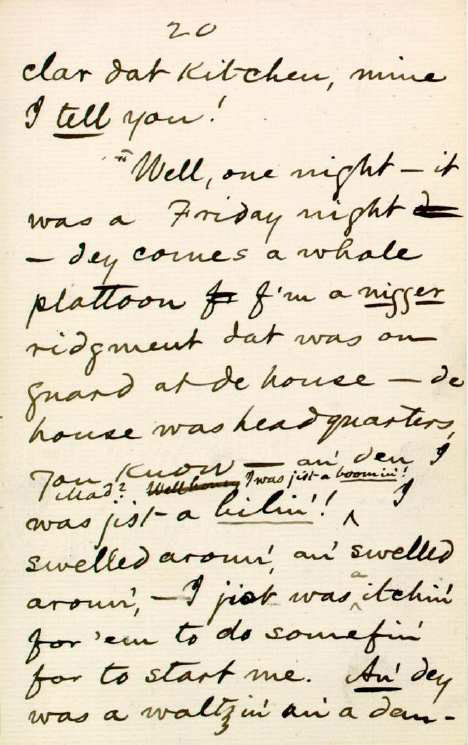 20
clar dat kitchen, mine
I tell you!
"Well, one night – it
was a Friday night
– dey comes a whole
plattoon f'm a nigger
ridgment dat was on
guard at de house – de
house was headquarters,
you know – an' den I
Mad? Well honey I was jist a boomin'!
was jist a bilin'! I
swelled aroun', an' swelled
aroun', – I jist was a itchin'
for 'em to do somefin'
for to start me. An' dey
was a waltzin' an' a dan-